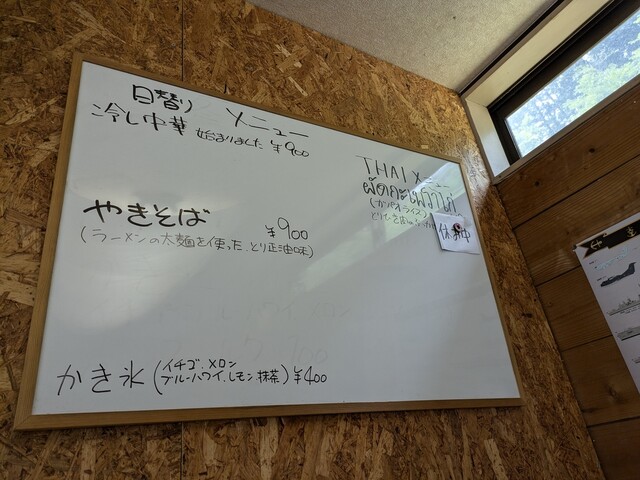 日替り メニュー
冷し中華 始まりました ¥900
やきそば ¥900
(ラーメンの太麺を使った、とり正油味)
かき氷 (イチゴ、メロン
ブルーハワイ、レモン、抹茶) ¥400
THAI メニュー
ผัดกะเพราไก่
(ガパオライス)
休み中